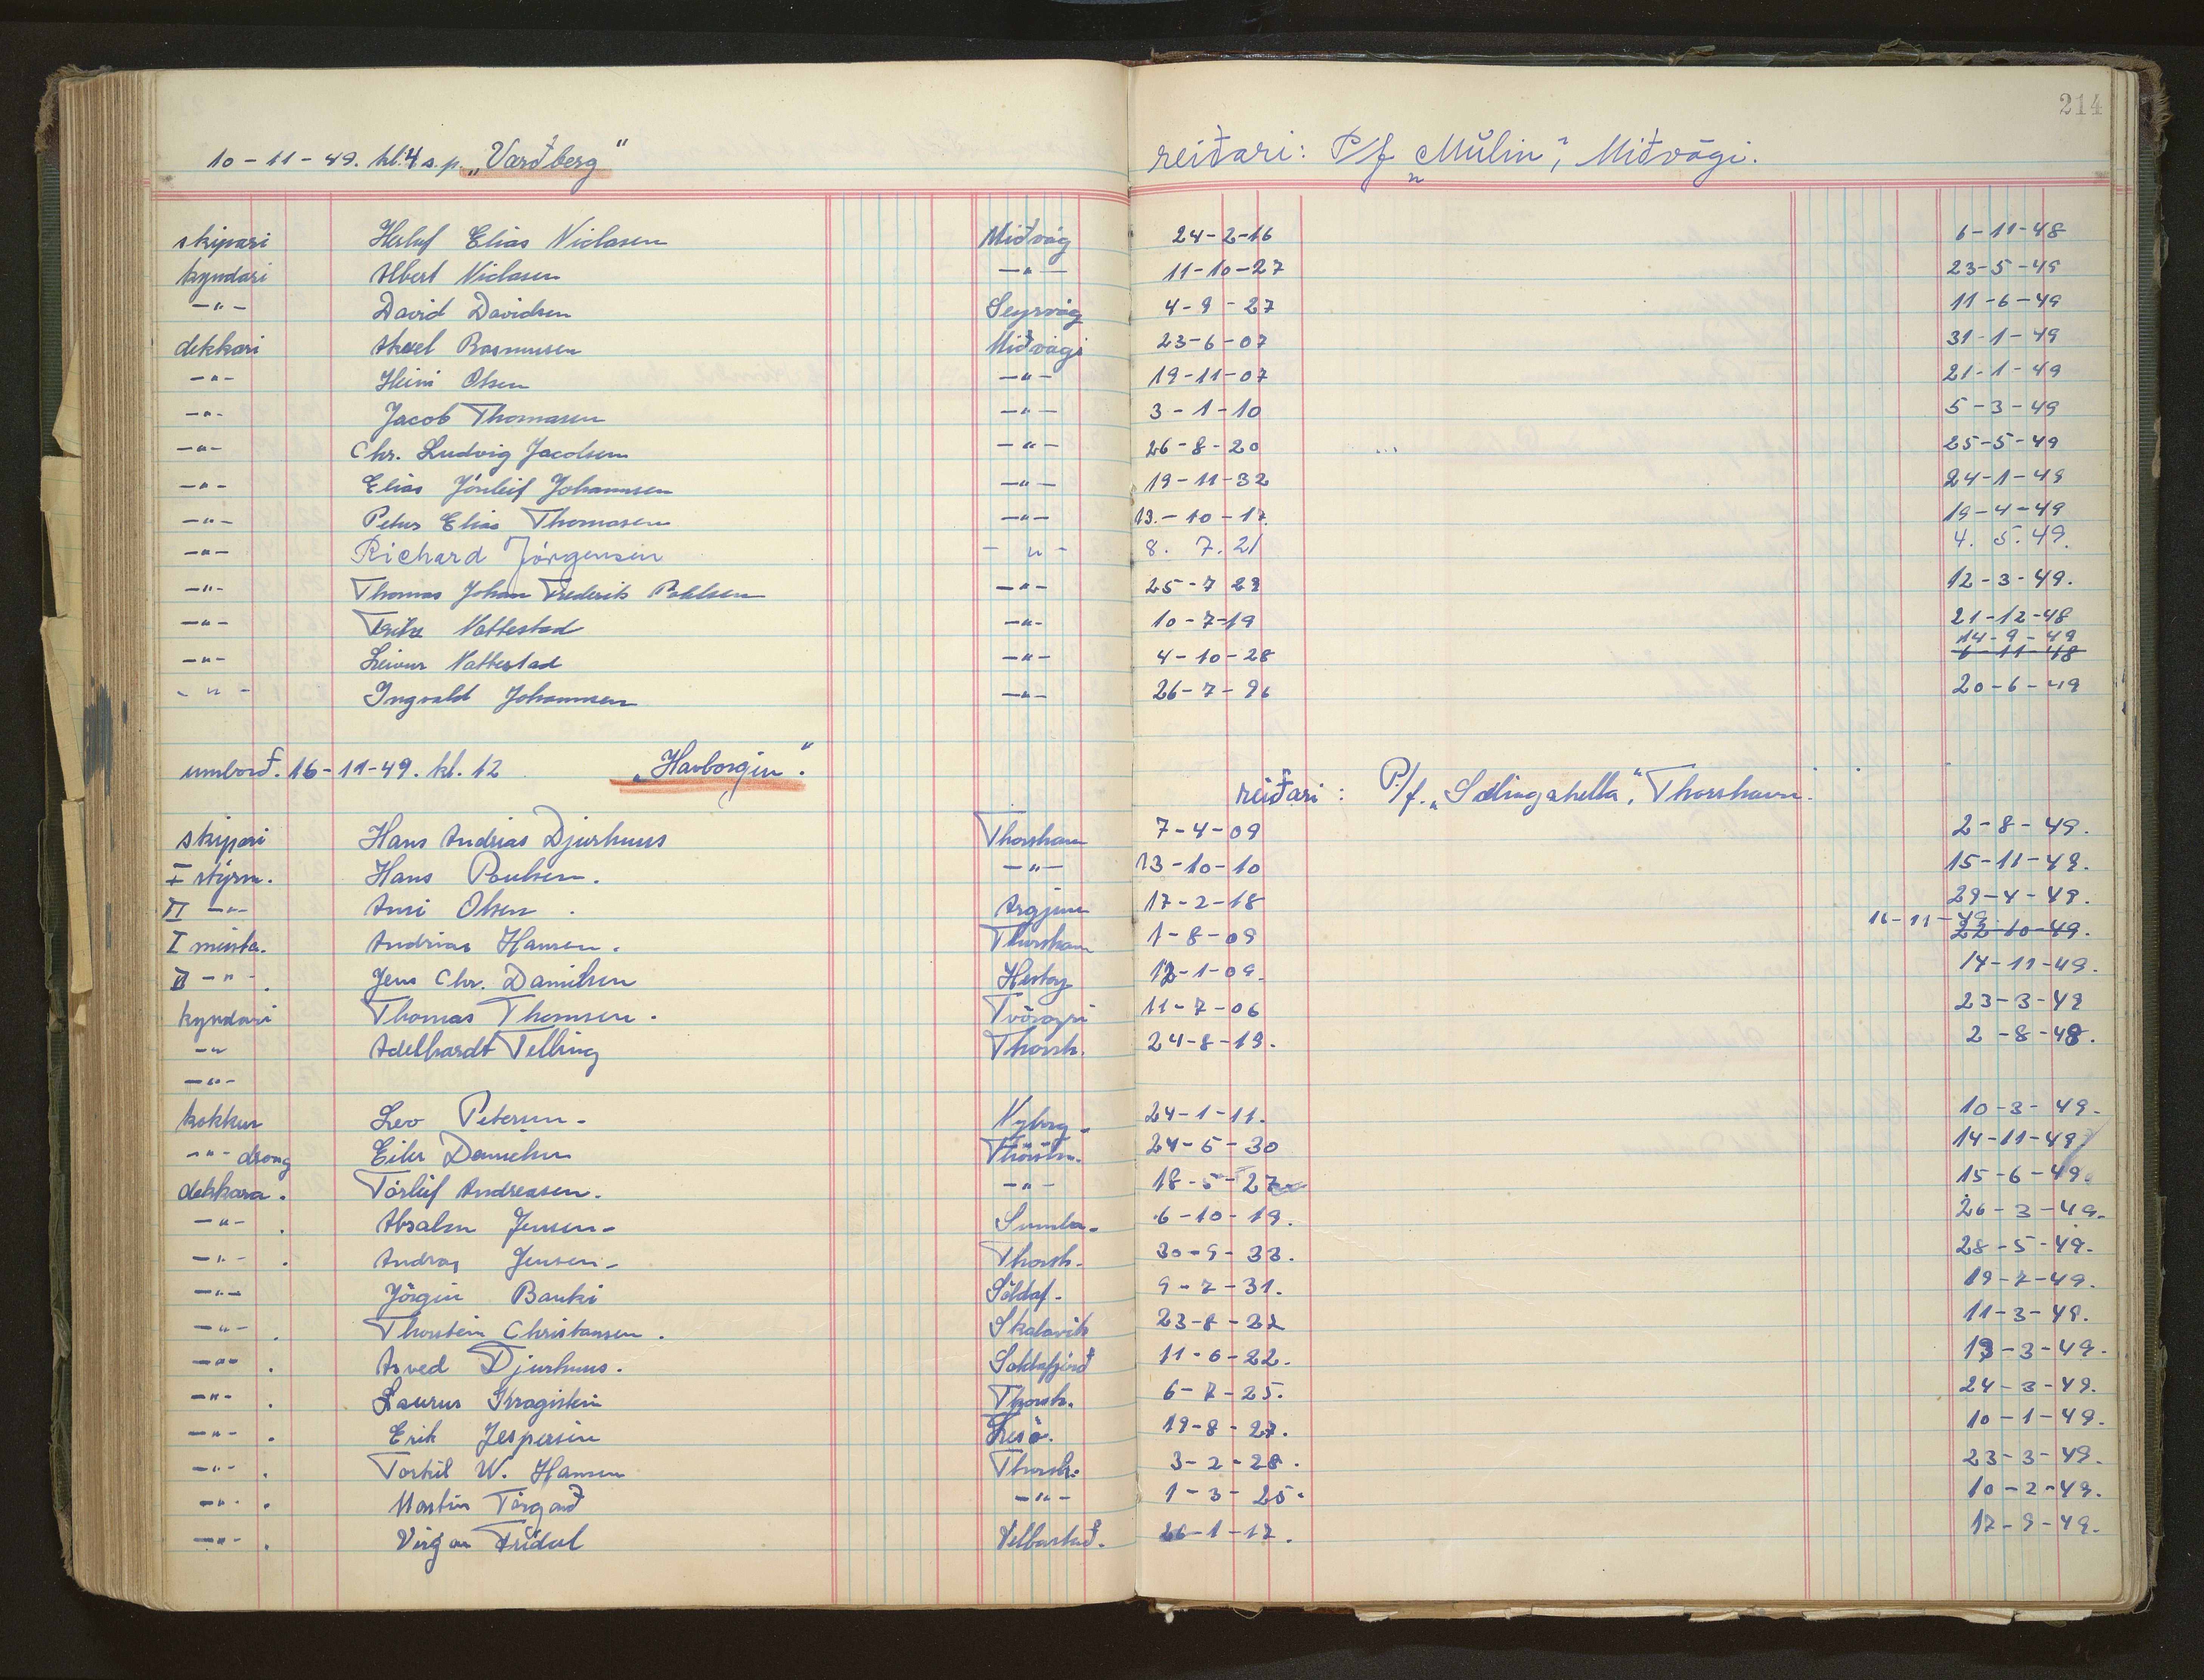 214
10-11-49. kl. 4 s.p. „Varðberg“ reiðari: P/f „Múlin“, Miðvági.
skipari Herluf Elias Niclasen Miðvág 24-2-16 6-11-48
kyndari Albert Niclasen -"- 11-10-27 23-5-49
-"- David Davidsen Seyrvág 4-9-27 11-6-49
dekkari Aksel Rasmussen Miðvági 23-6-07 31-1-49
-"- Heini Olsen -"- 19-11-07 21-1-49
-"- Jacob Thomasen -"- 3-1-10 5-3-49
-"- Chr. Ludvig Jacobsen -"- 26-8-20 25-5-49
-"- Elias Jónleif Johannesen -"- 19-11-32 24-1-49
-"- Petur Elias Thomasen -"- 13.-10-17. 19-4-49
-"- Richard Jörgensen -"- 8. 7. 21 4. 5. 49.
-"- Thomas Johan Frederik Poulsen -"- 25-7 29 12-3-49.
-"- Fritz Nattestad -"- 10-7-19 21-12-48
-"- Leivur Nattestad -"- 4-10-28 14-9-49 6-11-48
-"- Ingvald Johannesen -"- 26-7-96 20-6-49
umborð. 16-11-49. kl. 12 „Havborgin“. reiðari: P/f. „Sælingshella“, Thorshavn.
skipari Hans Andrias Djurhuus Thorshavn 7-4-09 2-8-49.
I stýrm. Hans Poulsen. -"- 13-10-10 15-11-49.
II -"- Arni Olsen. Argjum 17-2-18 29-4-49.
I meista. Andrias Hansen. Thorshavn 1-8-09 16-11-49 22-10-49.
II -"-. Jens Chr. Danielsen Hestoy 12-1-09. 14-11-49.
kyndari Thomas Thomsen. Tvöroyri 11-7-06 23-3-49
-"- Adelhardt Telling Thorsh. 24-8-19. 2-8-48.
-"-
kokkur Leo Petersen- Nyborg- 24-1-11. 10-3-49-
-"- drong Eiler Danielsen Thorsh. 24-5-30 14-11-49
dekkara. Tórleif Andreasen. -"- 18-5-27 15-6-49.
-"-. Absalon Jensen- Sumba- 6-10-19. 26-3-49-
-"-. Andras Jensen- Thorsh- 30-9-33. 28-5-49-
-"- Jögin Banki Söldaf- 9-7-31. 19-7-49.
-"-. Thorstein Christiansen. Skálavík 23-8-22 11-3-49.
-"-. Arved Djurhuus. Saldafjørð 11-6-22. 13-3-49.
-"-. Laurus Thragistein Thorsh. 6-7-25. 24-3-49.
-"-. Erik Jespersen Læsö. 19-8-27. 10-1-49.
-"-. Torkil W. Hansen Thorsh. 3-2-28. 23-3-49.
-"-. Martin Tórgarð -"- 1-3-25. 10-2-49.
-"-. Virgar Frídal Velbastað. 26-1-17. 17-9-49.